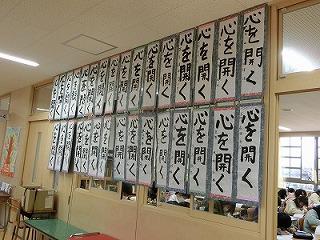 心を開く
心を開く
心を開く
心を開く
心を開く
心を開く
心を開く
心を開く
心を開く
心を開く
心を開く
心を開く
心を開く
心を開く
心を開く
心を開く
心を開く
心を開く
心を開く
心を開く
心を開く
心を開く
心を開く
心を開く